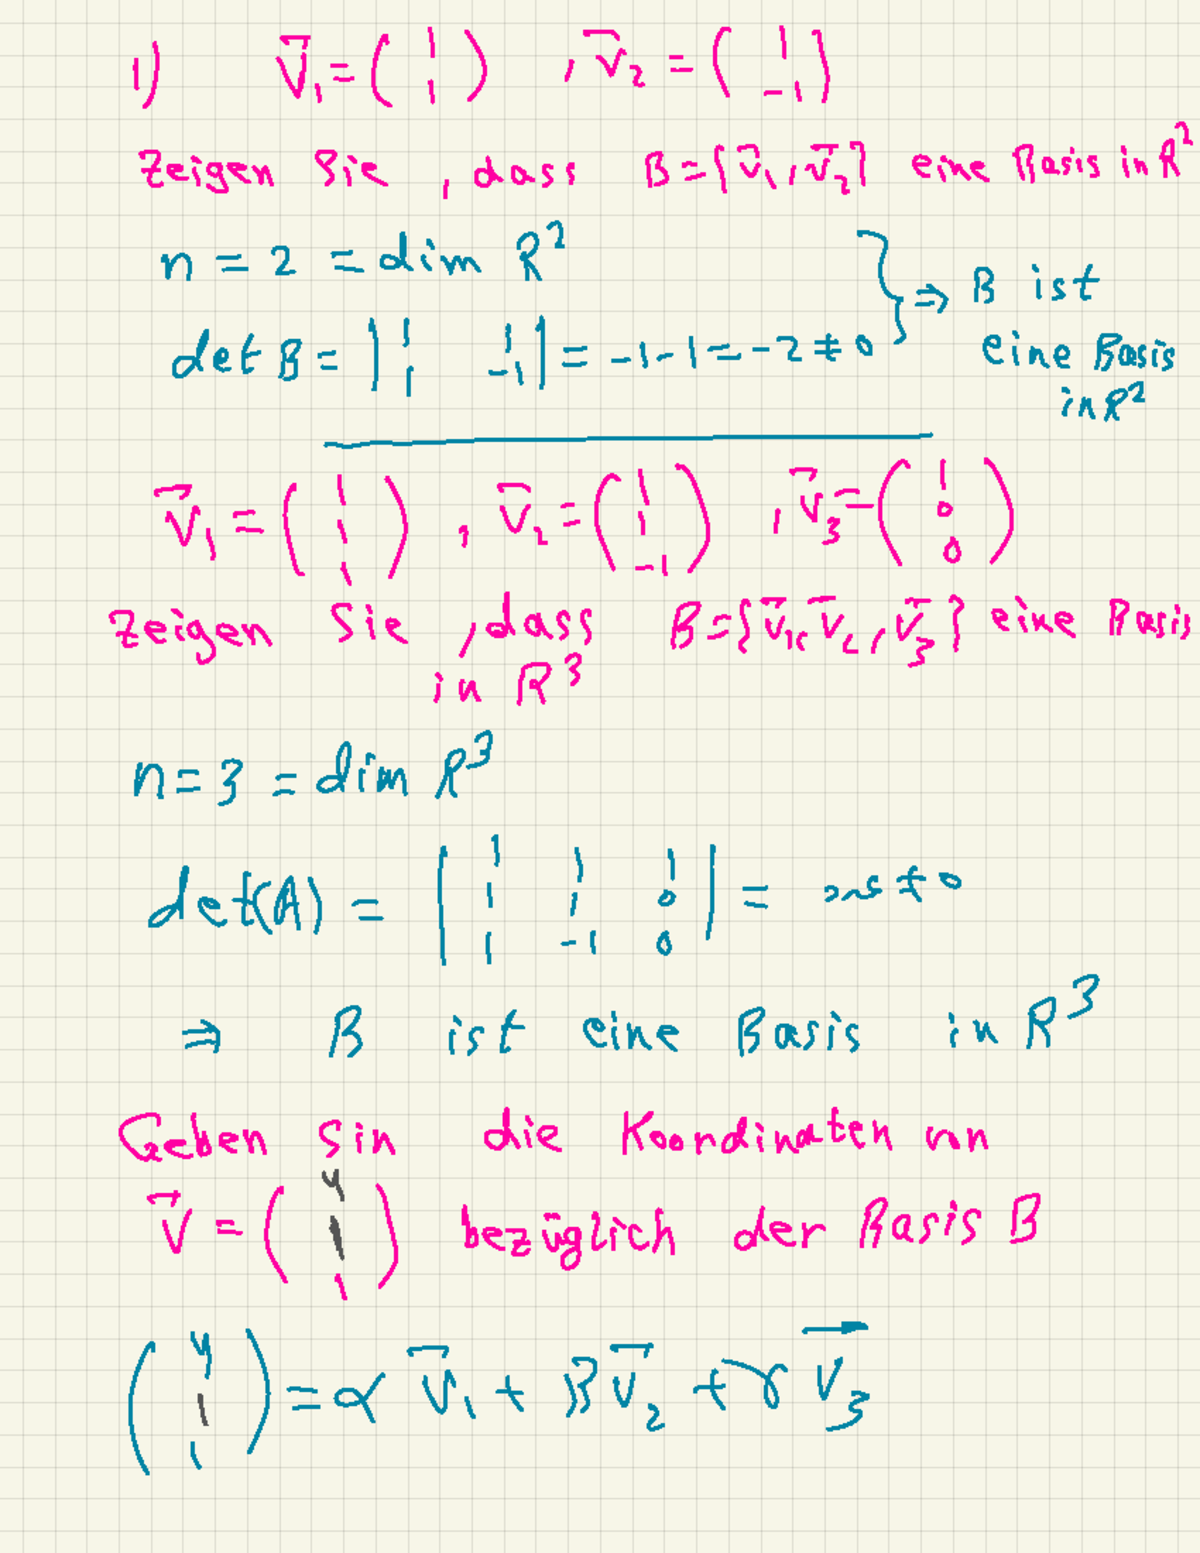 1) v⃗₁ = ( 1 1 ) , v⃗₂ = ( 1 -1 )
Zeigen Sie , dass B = {v⃗₁, v⃗₂} eine Basis in R²
n = 2 = dim R²
det B = | 1 1 1 -1 | = -1-1 = -2 ≠ 0 } ⇒ B ist eine Basis in R²
v⃗₁ = ( 1 1 1 ) , v⃗₂ = ( 1 1 -1 ) , v⃗₃ = ( 1 0 0 )
Zeigen Sie , dass B = {v⃗₁, v⃗₂, v⃗₃} eine Basis
in R³
n = 3 = dim R³
det(A) = | 1 1 1 1 1 0 1 -1 0 | = ≠ 0
⇒ B ist eine Basis in R³
Geben Sin die Koordinaten von
v⃗ = ( 4 1 1 ) bezüglich der Basis B
( 4 1 1 ) = α v⃗₁ + β v⃗₂ + γ v⃗₃